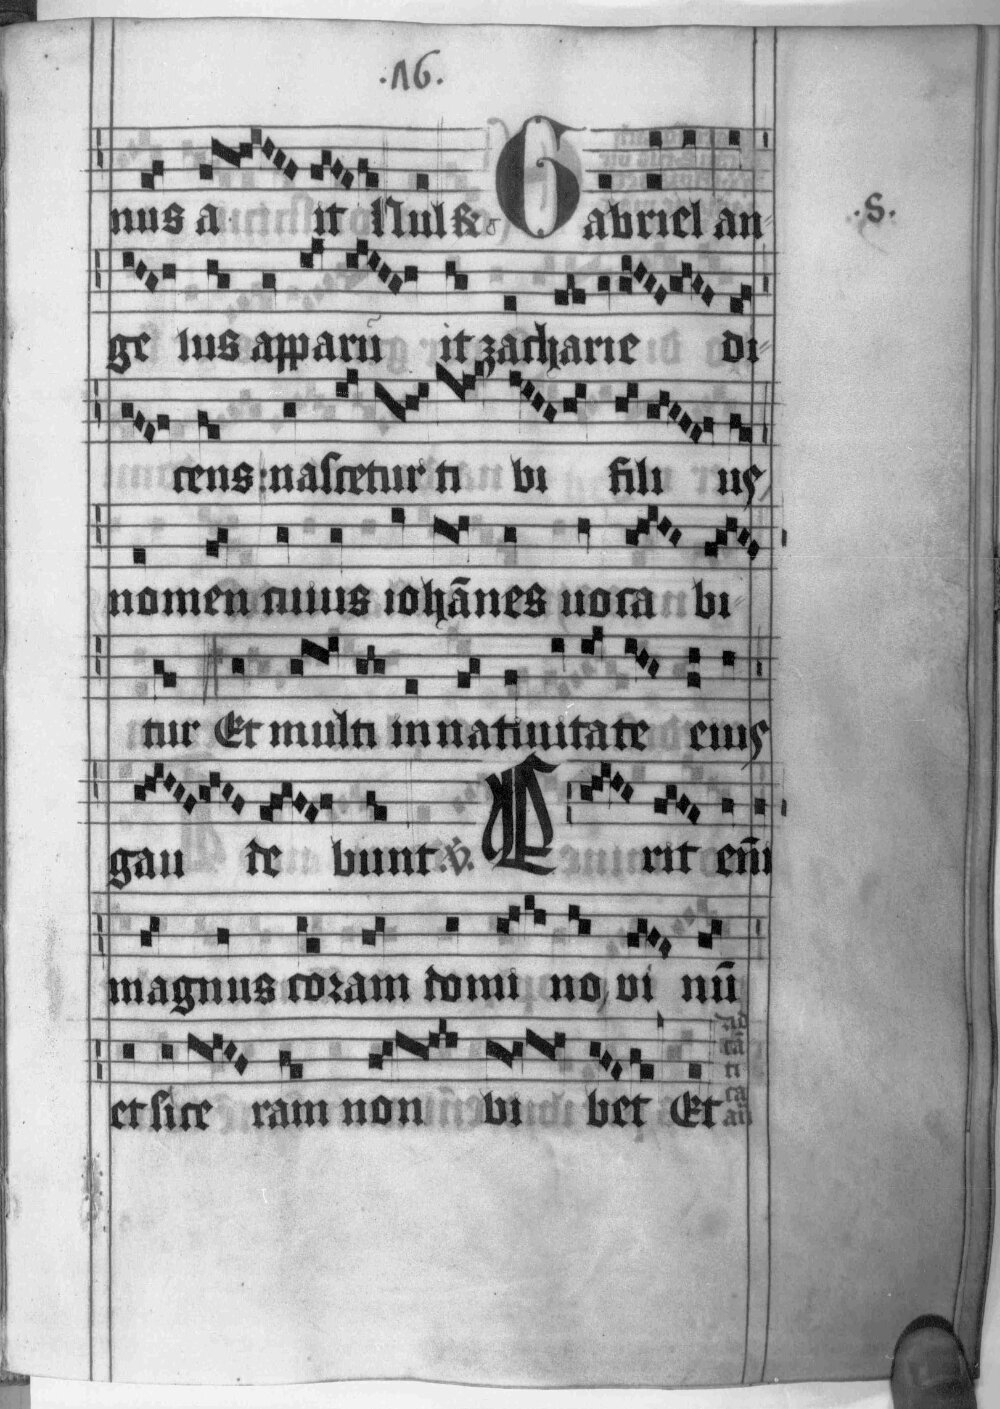 .16.
nus a it Nul &. Gabriel an
.S.
ge lus apparu̅ it zacharie di
cens: nascetur ti bi fili us
nomen cuius ioha̅nes uoca bi
tur Et multi in natiuitate eius
gau de bunt. v̇. Erit eni̅
magnus coram domi no, vi nu̅
et sice ram non bi bet Et